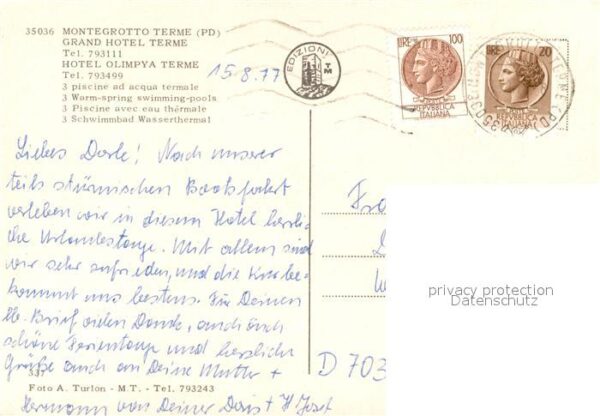 35036 MONTEGROTTO TERME (PD)
GRAND HOTEL TERME
Tel. 793111
HOTEL OLIMPYA TERME
Tel. 793499
3 piscine ad acqua termale
3 Warm-spring swimming-pools
3 Piscine avec eau thérmale
3 Schwimmbad Wasserthermal
15.8.77
EDIZIONI TM
LIRE 100
REPVBBLICA
ITALIANA
LIRE 20
REPVBBLICA
ITALIANA
Liebes Dorle! Nach unserer
teils stürmischen Bootsfahrt
verleben wir in diesem Hotel herrli-
che Urlaubstage. Mit allem sind
wir sehr zufrieden, und die Kur be-
kommt uns bestens. Für Deinen
lb. Brief vielen Dank, auch Euch
schöne Ferientage und herzliche
Grüße auch an Deine Mutter +
Hermann von Deiner + Josef
D 703
337
Foto A. Turlon - M.T. - Tel. 793243
privacy protection
Datenschutz